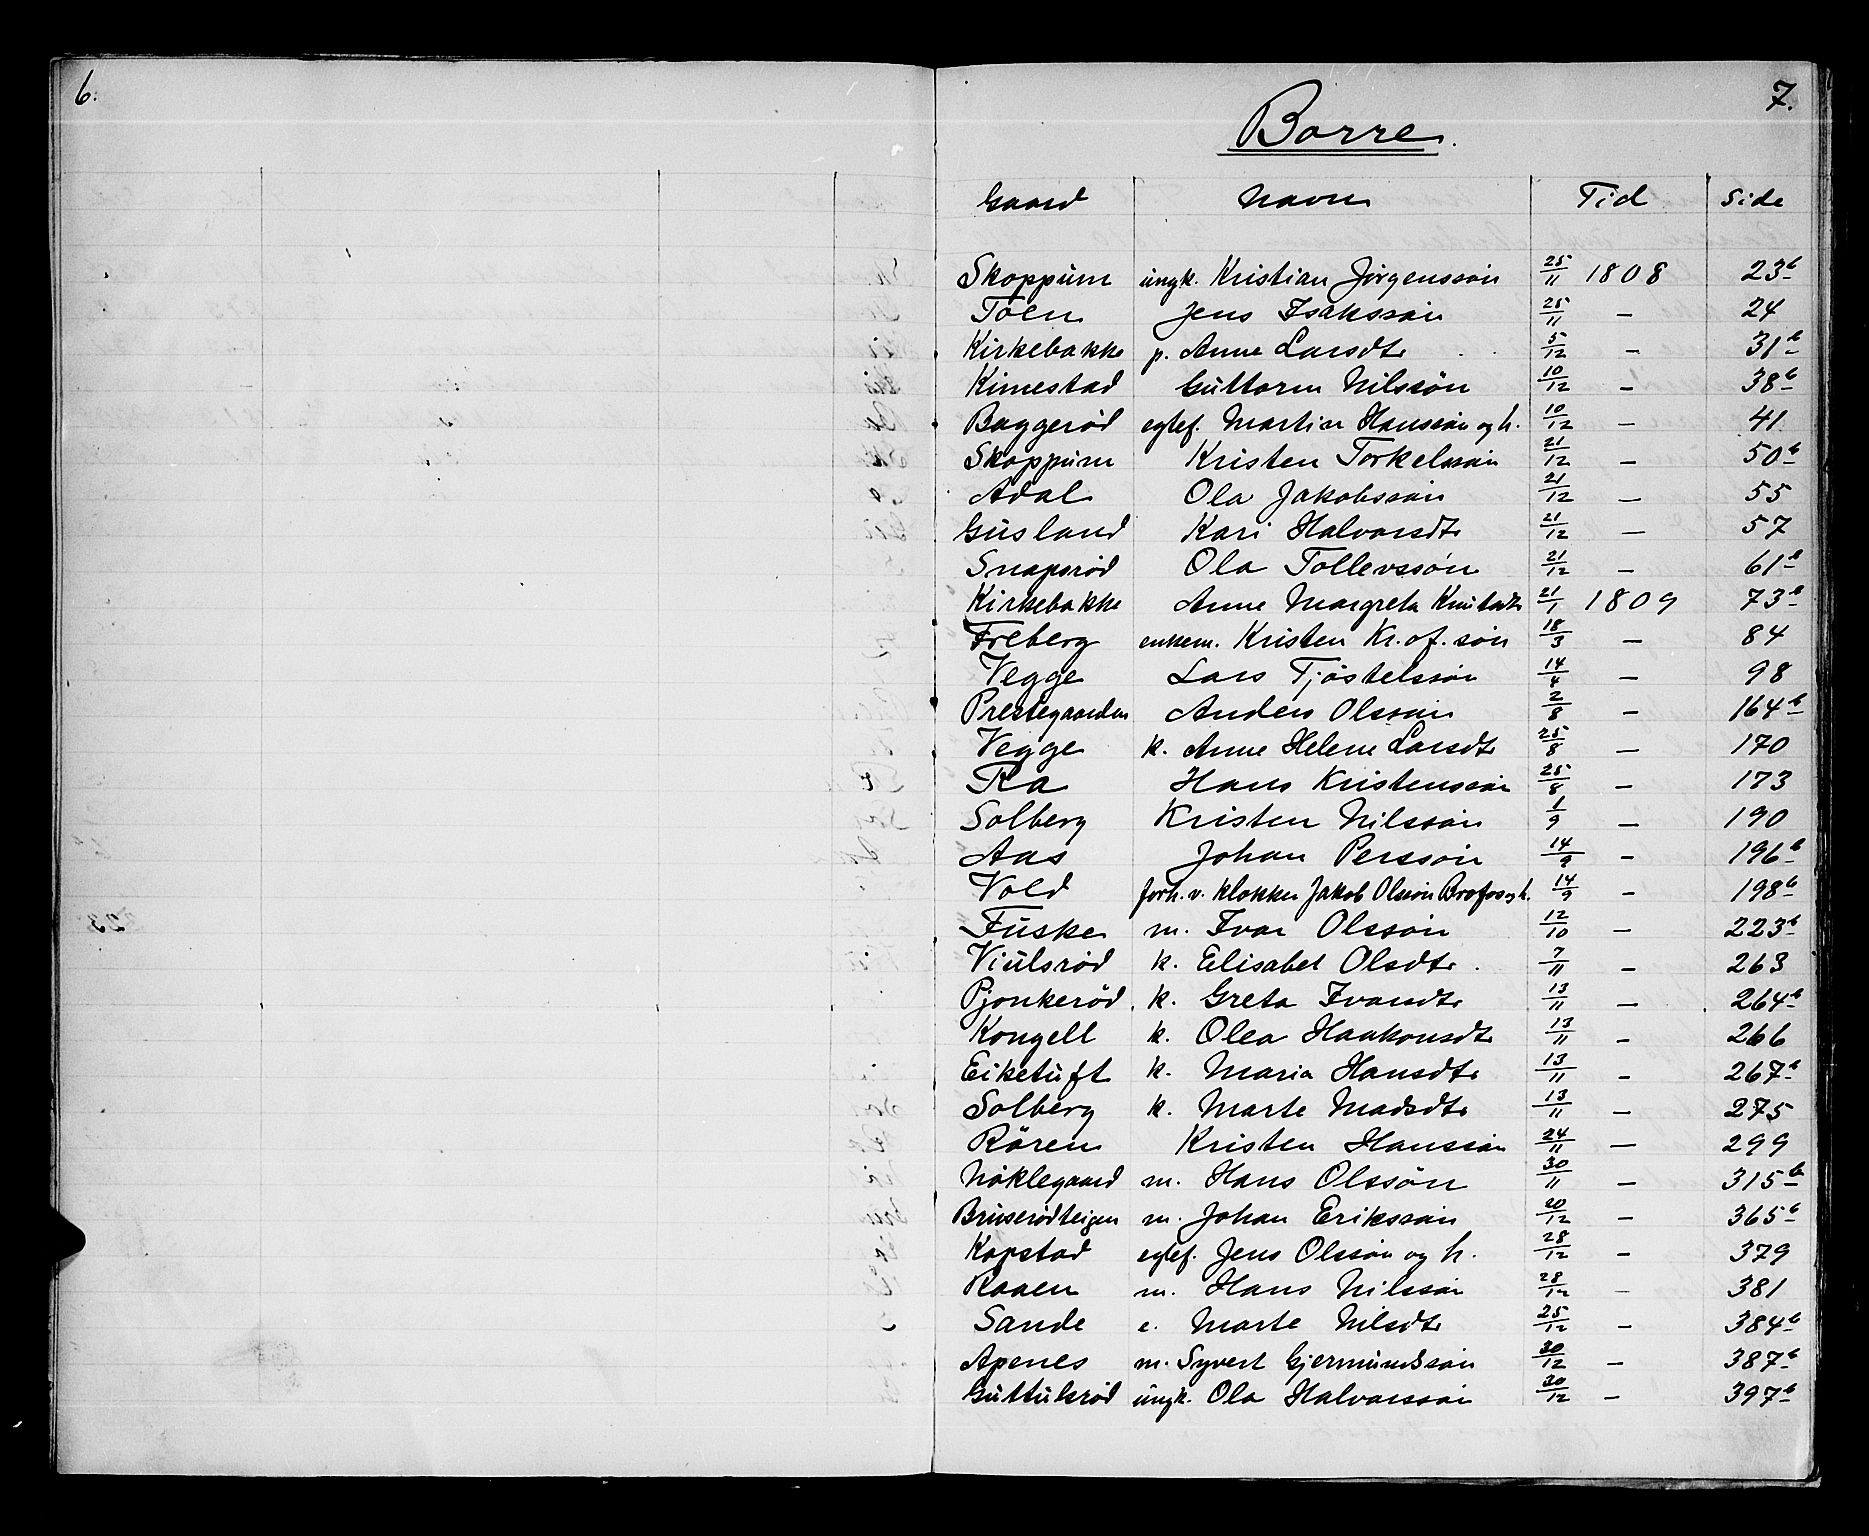 6.
7.
Borre.
Gaard Navn Tid Side
Skoppum ungk. Kristian Jörgenssön 25/11 1808 23b
Töen Jens Isakssön 25/11 — 24
Kirkebakke p. Anne Larsdtr 5/12 — 31b
Kimestad Guttorm Nilssön 10/12 — 38b
Baggeröd egtef. Martin Hanssön og h. 10/12 — 41
Skoppum Kristen Torkelssön 21/12 — 50b
Adal Ola Jakobssön 21/12 — 55
Gusland Kari Halvorsdtr 21/12 — 57
Snapsröd Ola Tollevssön 21/12 — 61b
Kirkebakke Anne Margreta Knutsdtr 21/1 1809 73b
Freberg enkem. Kristen Kr.of.sön 18/3 — 84
Vegge Lars Tjöstelssön 14/4 — 98
Prestegaarden Anders Olssön 2/8 — 164b
Vegge k. Anne Helene Larsdtr 25/8 — 170
Ra Hans Kristenssön 25/8 — 173
Solberg Kristen Nilssön 1/9 — 190
Aas Johan Perssön 14/9 — 196b
Vold forh. v. klokker Jakob Olssön Brofos og h. 14/9 — 198b
Fuske m. Ivar Olssön 12/10 — 223b
Viulsröd k. Elisabet Olsdtr. 7/11 — 263
Pjonkeröd k. Greta Ivarsdtr 13/11 — 264b
Kongell k. Olea Haakonsdtr 13/11 — 266
Eiketuft k. Maria Hansdtr 13/11 — 267b
Solberg k. Marte Madsdtr 13/11 — 275
Rören Kristen Hanssön 24/11 — 299
Nöklegaard m. Hans Olssön 30/11 — 315b
Bruserödteigen m. Johan Erikssön 20/12 — 365b
Kopstad egtef. Jens Olssön og h. 28/12 — 379
Raaen m. Hans Nilssön 28/12 — 381
Sande e. Marte Nilsdtr 25/12 — 384b
Apenes m. Syvert Gjermundssön 30/12 — 387b
Guttulsröd ungk. Ola Halvorssön 30/12 — 397b